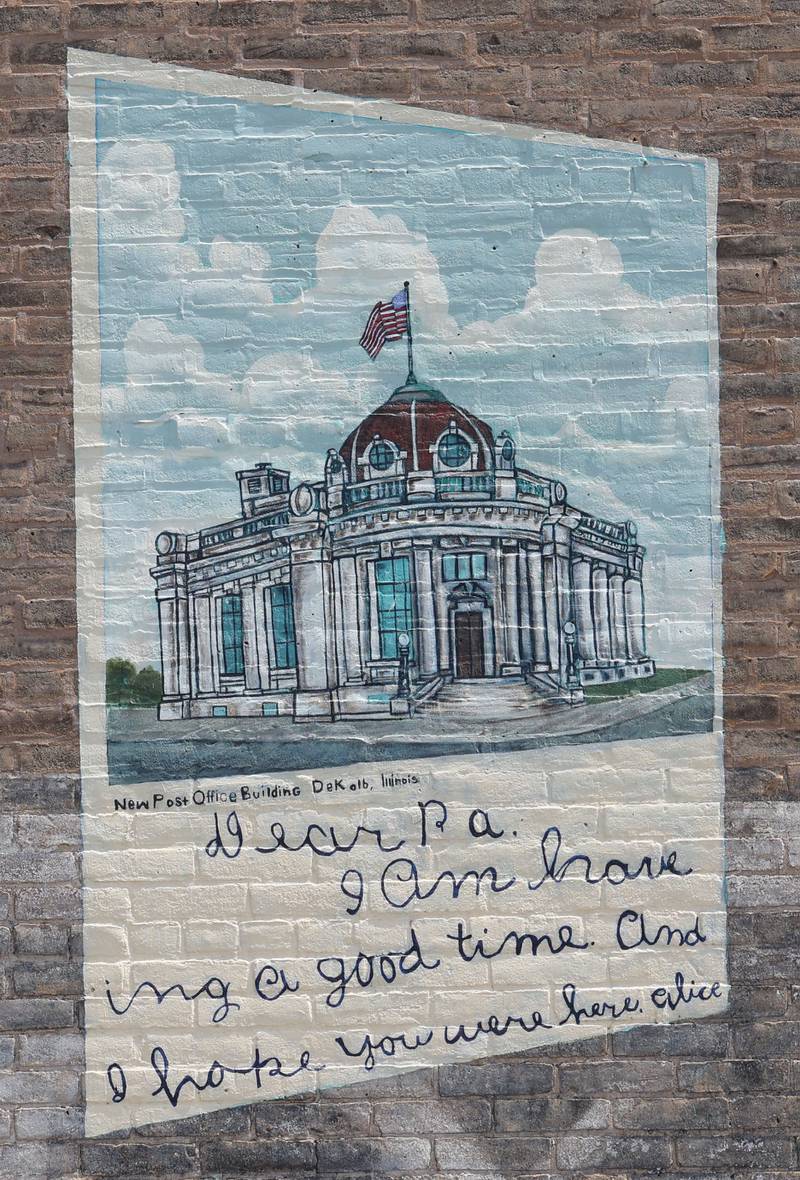 New Post Office Building DeKalb, Illinois
Dear Pa.
I Am have
ing a good time. And
I hope you were here. Alice